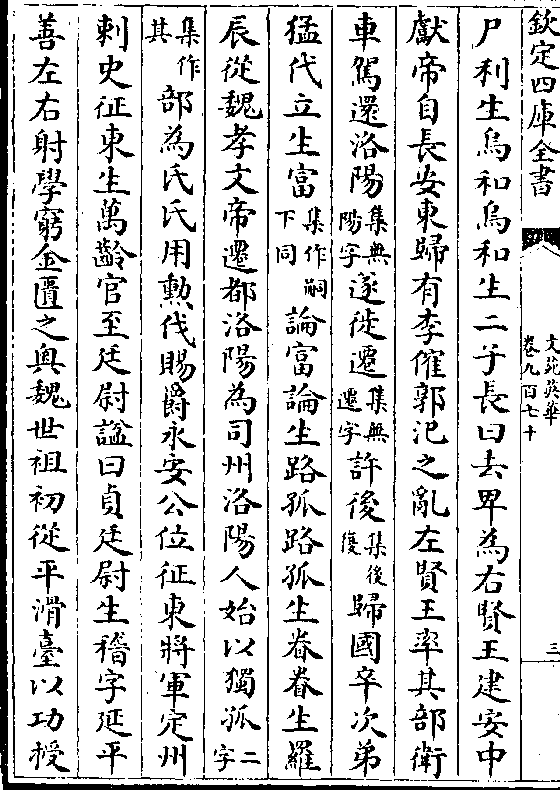 欽定四庫全書
文苑英華
卷九百七十
三
尸利生烏和烏和生二子長曰去卑為右賢王建安中
獻帝自長安東歸有李傕郭汜之亂左賢王率其部衛
車駕還洛陽集無陽字遂徙遷集無遷字許後集後復歸國卒次弟
猛代立生富集作嗣下同論富論生路孤路孤生眷眷生羅
辰從魏孝文帝遷都洛陽為司州洛陽人始以獨孤二字
集作其部為氏氏用勲伐賜爵永安公位征東將軍定州
刺史征東生萬齡官至廷尉謚曰貞廷尉生稽字延平
善左右射學窮金匱之奥魏世祖初從平滑臺以功授